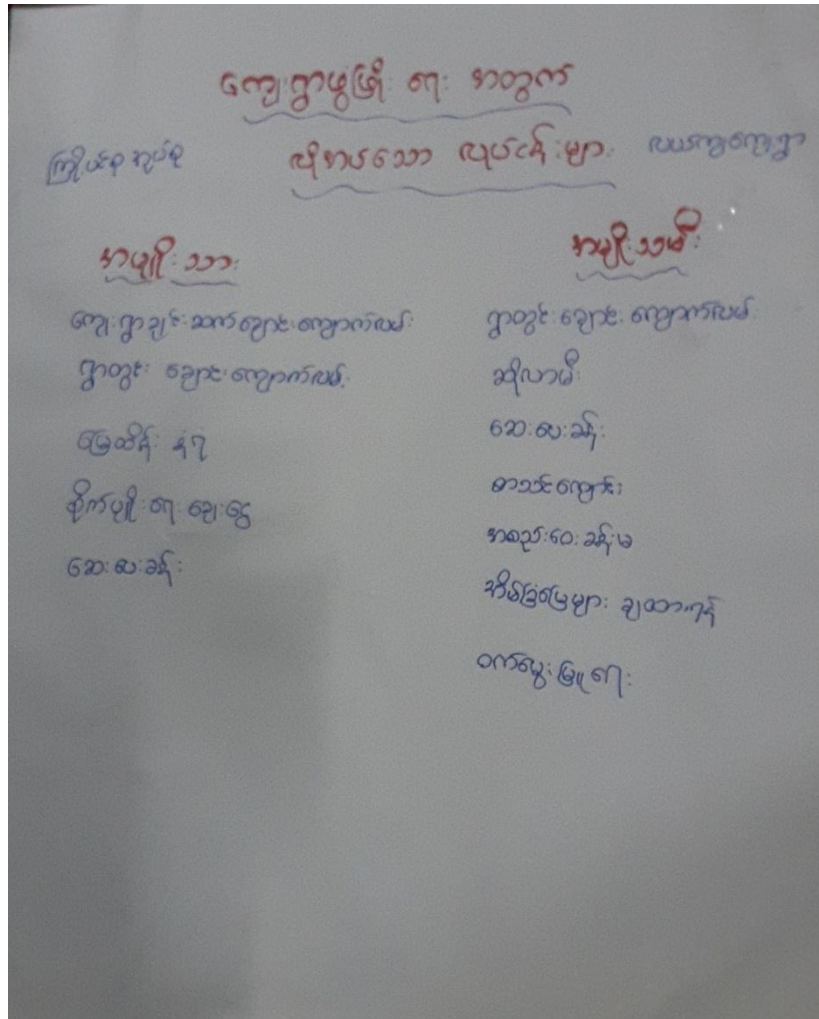 ကျေးရွာဖွံ့ဖြိုးရေး အတွက်
လိုအပ်သော လုပ်ငန်းများ
ကြိုပင်စု အုပ်စု
ကျေးရွာ
အမျိုးသား
ကျေးရွာချင်းဆက်ချောင်းကျောက်လမ်း
ရွာတွင်း ချောင်းကျောက်လမ်း
မြေထိန်း နံရံ
စိုက်ပျိုးရေး ချေးငွေ
ဆေးပေးခန်း
အမျိုးသမီး
ရွာတွင်း ချောင်းကျောက်လမ်း
ဆိုလာမီး
ဆေးပေးခန်း
စာသင်ကျောင်း
အစည်းဝေးခန်းမ
အိမ်ခြံမြေများ ချထားရန်
ဝက်မွေးမြူရေး